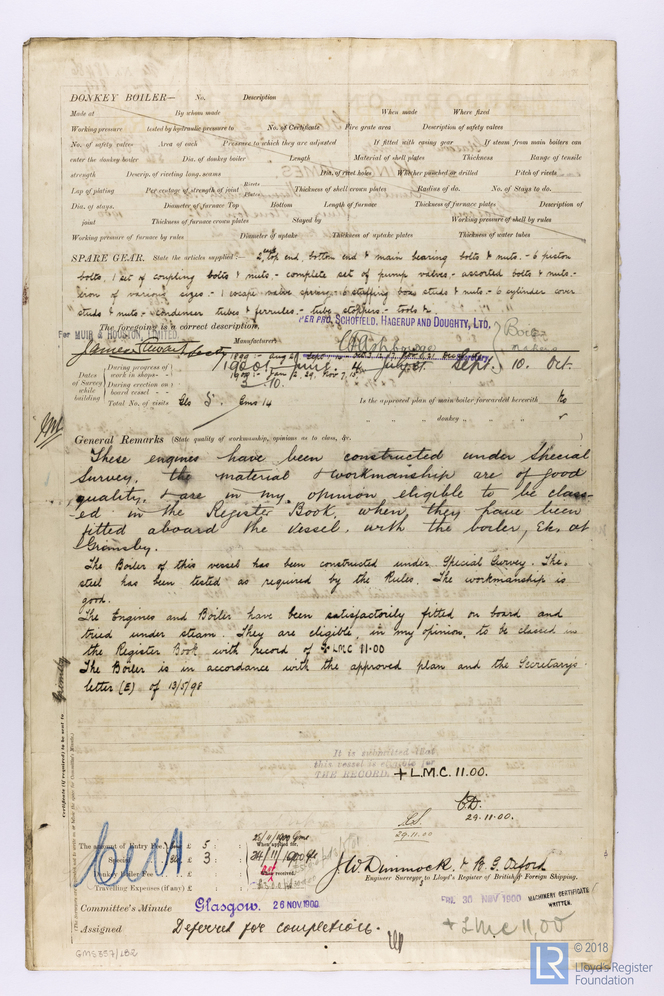 DONKEY BOILER— No. Description
Made at By whom made When made Where fixed
Working pressure tested by hydraulic pressure to No. of Certificate Fire grate area Description of safety valves
No. of safety valves Area of each Pressure to which they are adjusted If fitted with easing gear If steam from main boilers can
enter the donkey boiler Dia. of donkey boiler Length Material of shell plates Thickness Range of tensile
strength Descrip. of riveting long. seams Dia. of rivet holes Whether punched or drilled Pitch of rivets
Lap of plating Per centage of strength of joint Rivets Plates Thickness of shell crown plates Radius of do. No. of Stays to do.
Dia. of stays. Diameter of furnace Top Bottom Length of furnace Thickness of furnace plates Description of
joint Thickness of furnace crown plates Stayed by Working pressure of shell by rules
Working pressure of furnace by rules Diameter of uptake Thickness of uptake plates Thickness of water tubes
SPARE GEAR. State the articles supplied:— 2 each top end, bottom end & main bearing bolts & nuts. - 6 piston
bolts. 1 set of coupling bolts & nuts - complete set of pump valves - assorted bolts & nuts. -
iron of various sizes. - 1 escape valve spring - 6 stuffing box studs & nuts - 6 cylinder cover
studs & nuts - condenser tubes & ferrules - tube stoppers - tools &c
The foregoing is a correct description,
PER PRO. SCHOFIELD, HAGERUP AND DOUGHTY, LTD,
For MUIR & HOUSTON LIMITED. Manufacturer. Boiler Makers
James Stewart Secty
Secretary
Dates of Survey while building
During progress of work in shops - -
During erection on board vessel - - -
Total No. of visits Glo 5. Gms 14
Sept. 10. Oct.
3 10.
Is the approved plan of main boiler forwarded herewith
" " " donkey " " "
General Remarks (State quality of workmanship, opinions as to class, &c.
These engines have been constructed under Special
Survey. the material & workmanship are of good
quality, & are in my opinion eligible to be class-
ed in the Register Book, when they have been
fitted aboard the vessel, with the boiler, &c at
Grimsby.
The Boiler of this vessel has been constructed under Special Survey. The
steel has been tested as required by the Rules. The workmanship is
good.
The Engines and Boiler have been satisfactorily fitted on board and
tried under steam. They are eligible, in my opinion, to be classed in
the Register Book with record of + LMC 11.00
The Boiler is in accordance with the approved plan and the Secretary's
letter (E) of 13/5/98
Certificate (if required) to be sent to Grimsby
It is submitted that
this vessel is eligible for
THE RECORD. + L.M.C. 11.00.
29.11.00.
29.11.00
The amount of Entry Fee £ 5 :
Special £ 3 :
Donkey Boiler Fee £ : :
Travelling Expenses (if any) £ : :
When applied for,
24/11/1900
When received,
J. W. Dimmock. & W. G. Oxford
Engineer Surveyors to Lloyd's Register of British & Foreign Shipping.
Committee's Minute Glasgow. 26 NOV. 1900
FRI. 30 NOV 1900
MACHINERY CERTIFICATE
WRITTEN.
Assigned Deferred for completion.
+ LMC 11,00
GMS357/152
LR
© 2018
Lloyd's Register
Foundation